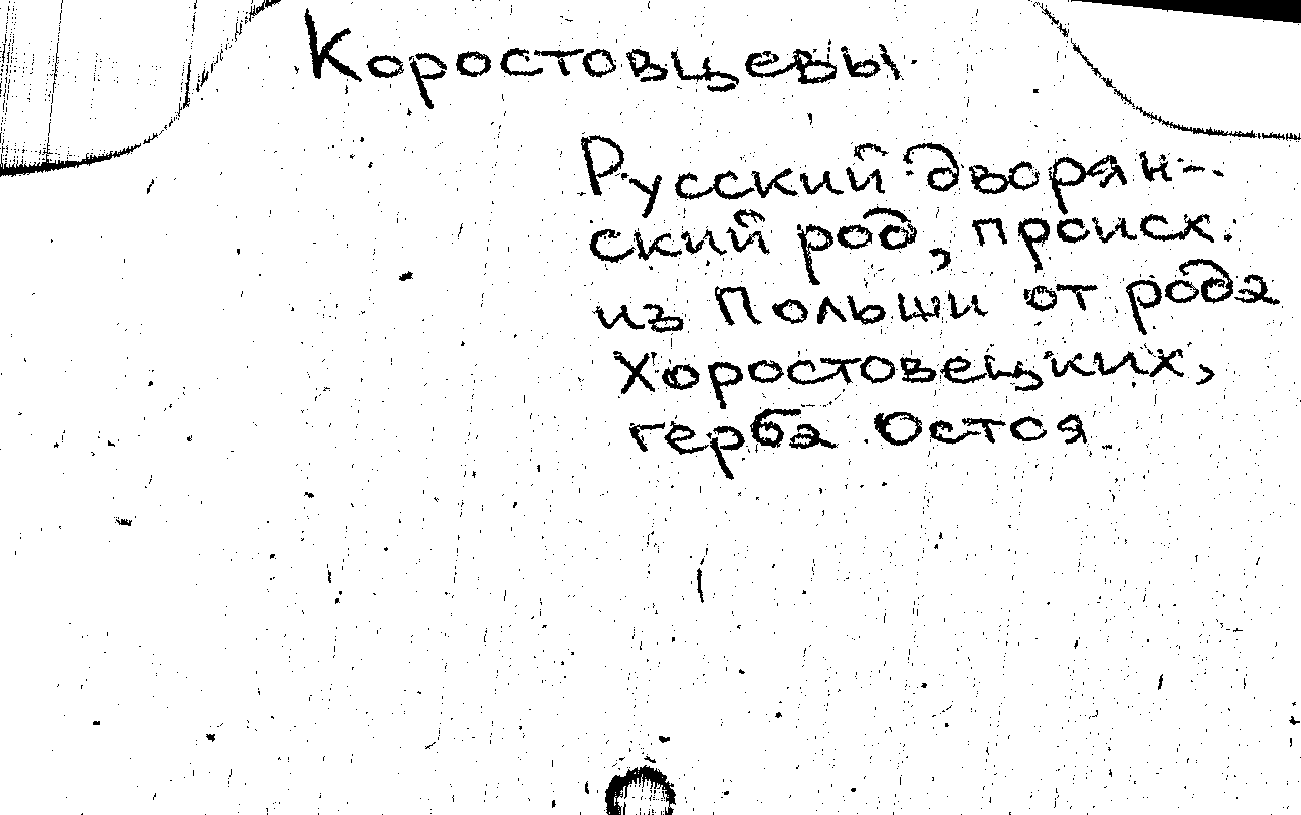 Коростовцевы
Русский дворян-
ский род, происх.
из Польши от рода
Хоростовецких,
герба Остоя